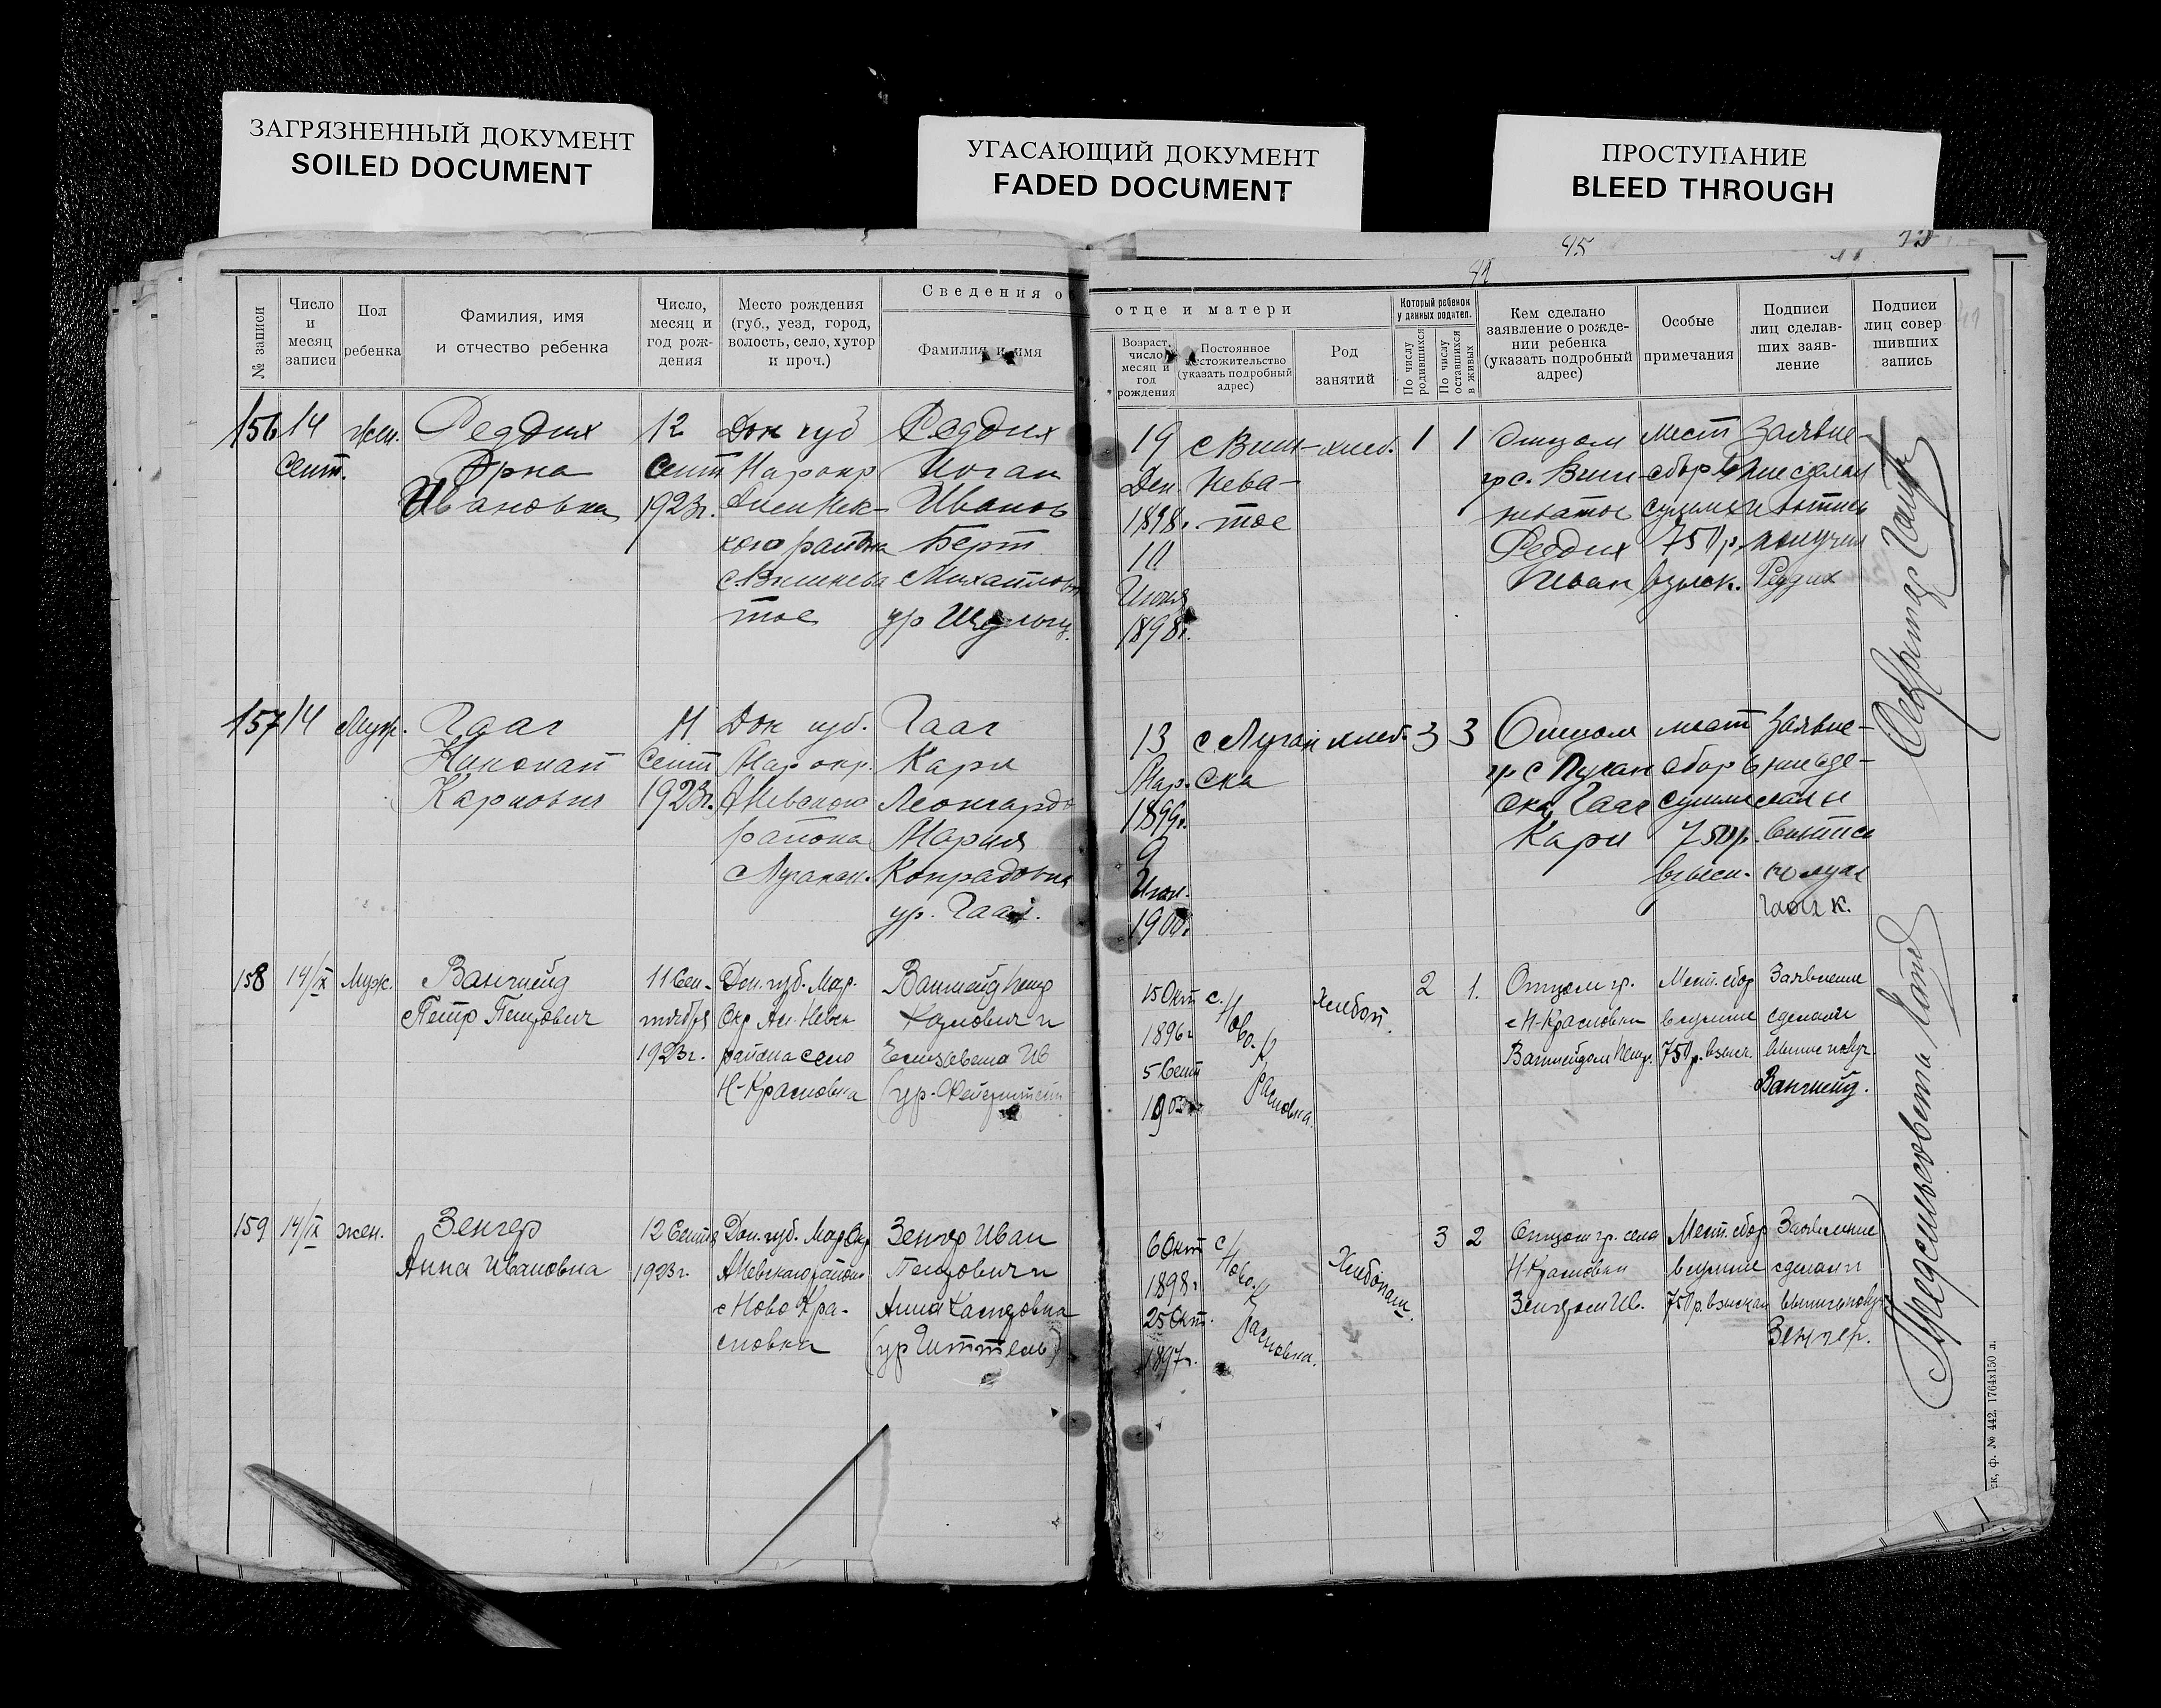 ЗАГРЯЗНЕННЫЙ ДОКУМЕНТ
SOILED DOCUMENT
УГАСАЮЩИЙ ДОКУМЕНТ
FADED DOCUMENT
ПРОСТУПАНИЕ
BLEED THROUGH
45
№ записи
Число
и
месяц
записи
Пол
ребенка
Фамилия, имя
и отчество ребенка
Число,
месяц и
год рож-
дения
Место рождения
(губ., уезд, город,
волость, село, хутор
и проч.)
Сведения о
Фамилия и имя
отце и матери
Возраст,
число,
месяц и
год
рождения
Постоянное
местожительство
(указать подробный
адрес)
Род
занятий
Который ребенок
у данных родител.
По числу
родившихся
По числу
оставшихся
в живых
Кем сделано
заявление о рожде-
нии ребенка
(указать подробный
адрес)
Особые
примечания
Подписи
лиц сделав-
ших заяв-
ление
Подписи
лиц совер
шивших
запись
156
14
Сент.
жен.
Реддих
Эрна
Ивановна
12
Сент
1923г.
Дон губ
Мар окр
района
тое
Реддих
Иоган
Иванов
Берт
Михайловн
ур
19
Дек
1898.
10
Июня
1898г.
с Виш-
нева-
тое
хлеб.
1
1
Отцом
гр с. Виш-
неватое
Реддих
Иван
мест
сбор в
сумме
750р
взыск.
Заявле-
ние сделал
и
получил
Реддих
157
14
Муж.
Гааг
Карлович
11
Сент
1923г.
Дон губ.
Мар окр.
А Невского
района
с Луганск.
Гааг
Карл
Леонгардо
Мария
Конрадовна
ур. Гааг.
13
Мар.
1899г.
9
Июл.
1900г.
с Луган
ска
хлеб.
3
3
Отцом
гр с Луган
ска Гааг
Карл
мест
сбор в
сумме
750р.
взыск.
Заявле-
ние сде-
лал и
выпись
получ
Гааг К.
158
14/IX
Муж.
Вангейд
Петр Петрович
11 Сен-
тября
1923г.
Дон. губ. Мар.
Окр Ал. Невск
района село
Н-Красновка
Вангейд Петр
Карлович и
Елизавета Ив
15 Окт
1896г
5 Сент
с. Ново-К
расновка.
Хлебоп.
2
1.
Отцом гр.
с Н-Красновки
Вангейдом Петр.
Мест. сбор
в сумме
750р. взыск.
Заявление
сделал и
выпись получ.
Вангейд.
159
14/IX
жен.
Зенгер
Анна Ивановна
12 Сентя
1923г.
Дон. губ. Мар Окр
А Невского район
с Ново Кра-
сновка
Зенгер Иван
Петрович и
Анна Каспровна
(ур Читтель)
6 Окт
1898г
25 Окт.
1897г.
с Ново-К
расновка.
Хлебопаш.
3
2
Отцом гр. села
Н-Красновки
Зенгером Ив.
Мест. сбор
в сумме
750р. взыскан
Заявление
сделал и
выпись получ
Зенгер.
Секретарь
Предсельсовета
ск, ф. № 442. 1764х150 л.